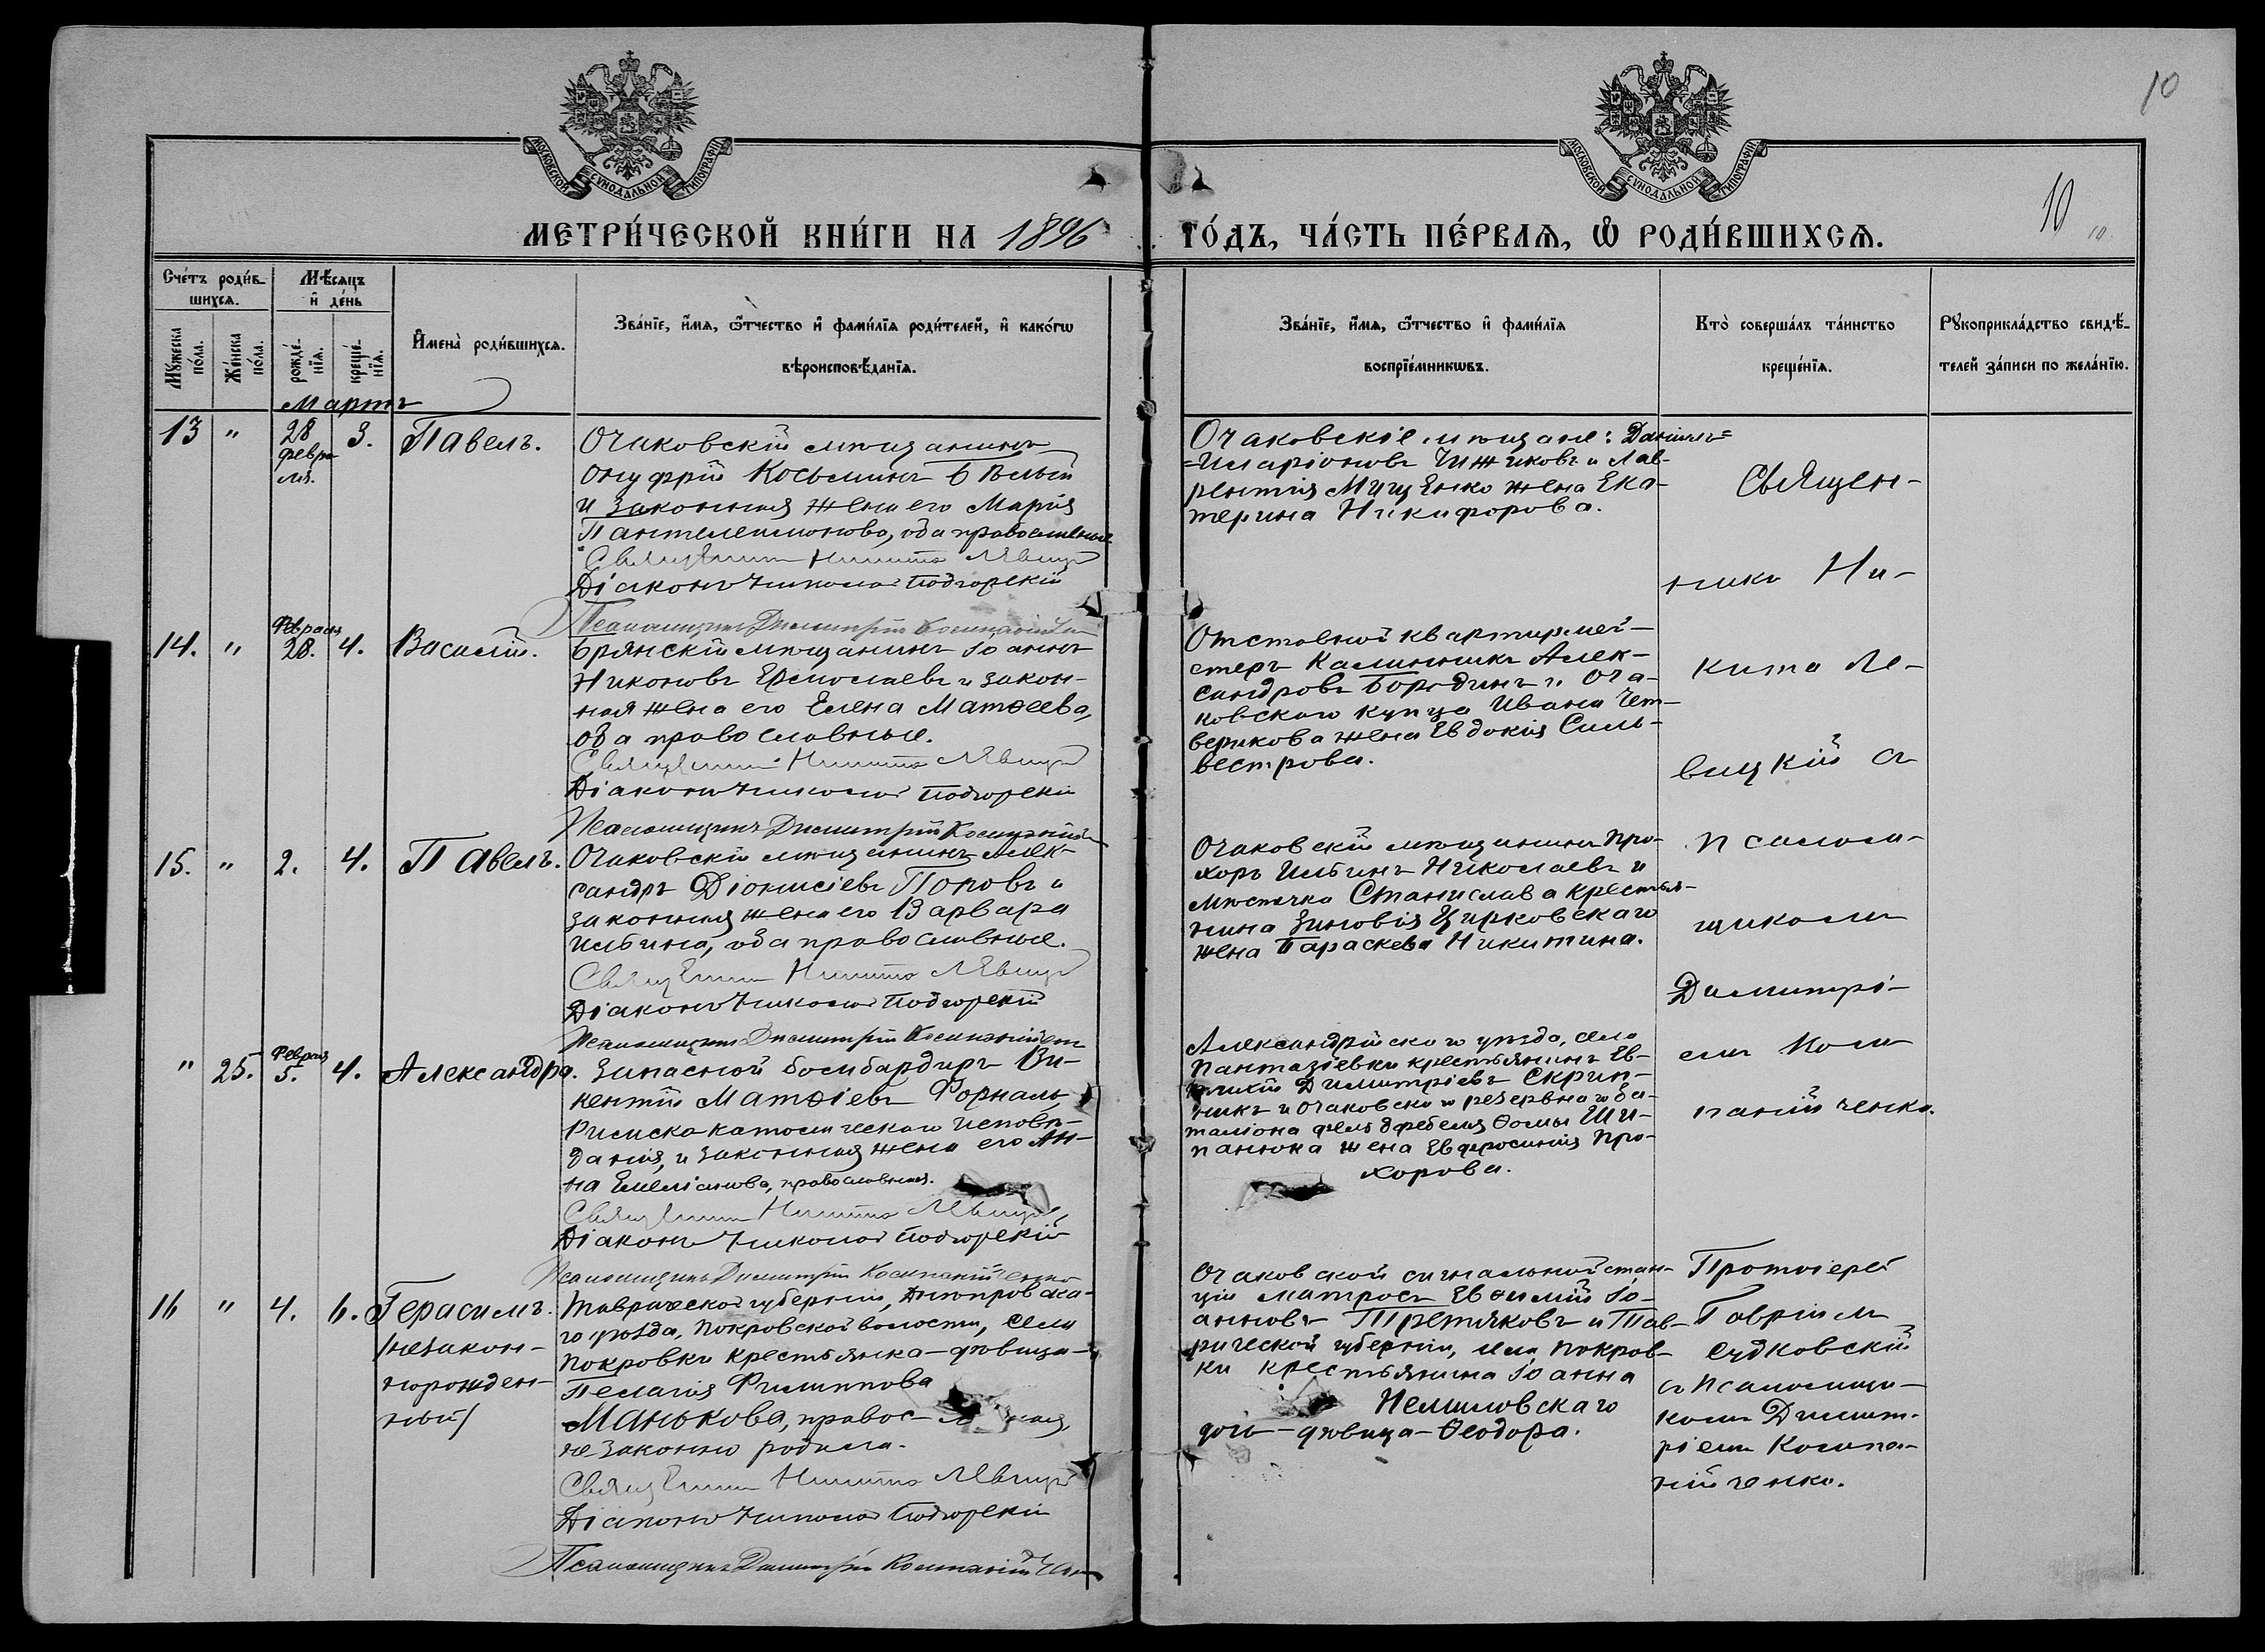 10
МОСКОВСКОЙ СѴНОДАЛЬНОЙ ТИПОГРАФІИ
МОСКОВСКОЙ СѴНОДАЛЬНОЙ ТИПОГРАФІИ
10
10
МЕТРИ́ЧЕСКОЙ КНИ́ГИ НА 1896 ГО́ДЪ, ЧА́СТЬ ПЕ́РВАѦ, Ѽ РОДИ́ВШИХСѦ.
Сче́тъ роди́в-
шихсѧ.
Мꙋжеска по́ла.
Же́нска по́ла.
Мѣ́сѧцъ
и҆ де́нь
рожде́-
нїѧ.
креще́-
нїѧ.
И҆мена̀ роди́вшихсѧ.
Зва́нїе, и҆́мѧ, ѻ҆́тчество и҆ фами́лїѧ роди́телей, и҆ како́гѡ
вѣроисповѣ́данїѧ.
Зва́нїе, и҆́мѧ, ѻ҆́тчество и҆ фами́лїѧ
воспрїе́мникѡвъ.
Кто̀ соверша́лъ та́инство
креще́нїѧ.
Рꙋкоприкла́дство свидѣ́-
телей за́писи по жела́нїю.
Мартъ
13 " 28 февра-
ля. 3. Павелъ.
Очаковскій мѣщанинъ
Онуфрій Косьминъ Бѣлый
и законная жена его Марія
Пантелеимонова, оба православные.
Священникъ Никита Левицкій
Діаконъ Николай Подгорскій
Псаломщикъ Димитрій Компанійченко
Очаковскіе мѣщане: Даніилъ
Иларіоновъ Чижиковъ и Лав-
рентія Мищенко жена Ека-
терина Никифорова.
14. " Февраля
28. 4. Василій.
Брянскій мѣщанинъ Іоаннъ
Никоновъ Ермолаевъ и закон-
ная жена его Елена Матѳеева,
оба православные.
Священникъ Никита Левицкій
Діаконъ Николай Подгорскій
Псаломщикъ Димитрій Компанійченко
Отставной квартирмей-
стеръ Калинникъ Алек-
сандровъ Бородинъ и Оча-
ковскаго купца Ивана Чет-
верикова жена Евдокія Силь-
вестрова.
15. " 2. 4. Павелъ.
Очаковскій мѣщанинъ Алек-
сандръ Діонисіевъ Поповъ и
законная жена его Варвара
Ильина, оба православные.
Священникъ Никита Левицкій
Діаконъ Николай Подгорскій
Псаломщикъ Димитрій Компанійченко
Очаковскій мѣщанинъ Про-
хоръ Ильинъ Николаевъ и
мѣстечка Станислава крестья-
нина Зиновія Цирковскаго
жена Параскева Никитина.
" 25. Февраля
5. 4. Александра.
Запасной бомбардиръ Ви-
кентій Матѳіевъ Форналь
Римскокатолическаго исповѣ-
данія, и законная жена его Ан-
на Емеліанова, православная.
Священникъ Никита Левицкій
Діаконъ Николай Подгорскій
Псаломщикъ Димитрій Компанійченко
Александрійскаго уѣзда, села
Пантазіевки крестьянинъ Ев-
тихій Димитріевъ Скрип-
никъ и Очаковскаго резервнаго ба-
таліона фельдфебеля Ѳомы Ши-
панюка жена Евфросинія Про-
хорова.
Священ-
никъ Ни-
кита Ле-
вицкій съ
псалом-
щикомъ
Димитрі-
емъ Ком-
панійченко.
16 " 4. 6. Герасимъ.
/незакон-
норожден-
ный/
Таврической губерніи, Днѣпровска-
го уѣзда, Покровской волости, села
Покровки крестьянка-дѣвица-
Пелагія Филиппова
Манькова, православная,
незаконно родила.
Священникъ Никита Левицкій
Діаконъ Николай Подгорскій
Псаломщикъ Димитрій Компанійченко
Очаковской сигнальной стан-
ціи матросъ Евѳимій Іо-
анновъ Третьяковъ и Тав-
рической губерніи, села Покров-
ки крестьянина Іоанна
Немиловскаго
дочь-дѣвица-Ѳеодора.
Протоіерей
Гавріилъ
Судковскій
съ псаломщи-
комъ Димит-
ріемъ Компа-
нійченко.